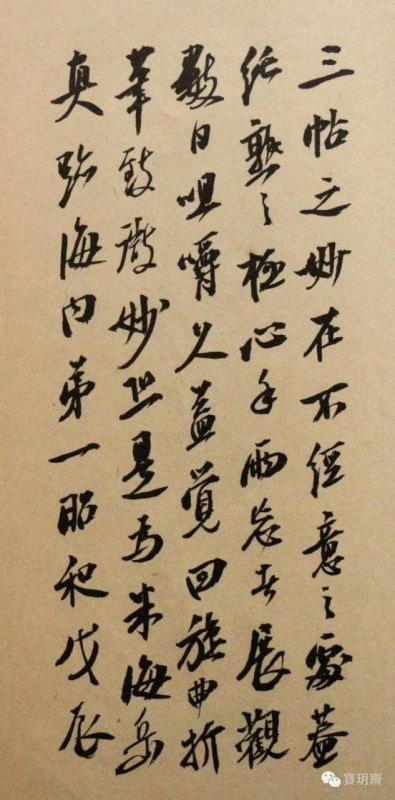 三帖之妙在不經意之處蓋
純熟之極心手兩忘者展觀
數日咀嚼久益覺回旋曲折
筆致妙是為米海岳
真跡海內第一昭和戊辰
寶玥齋